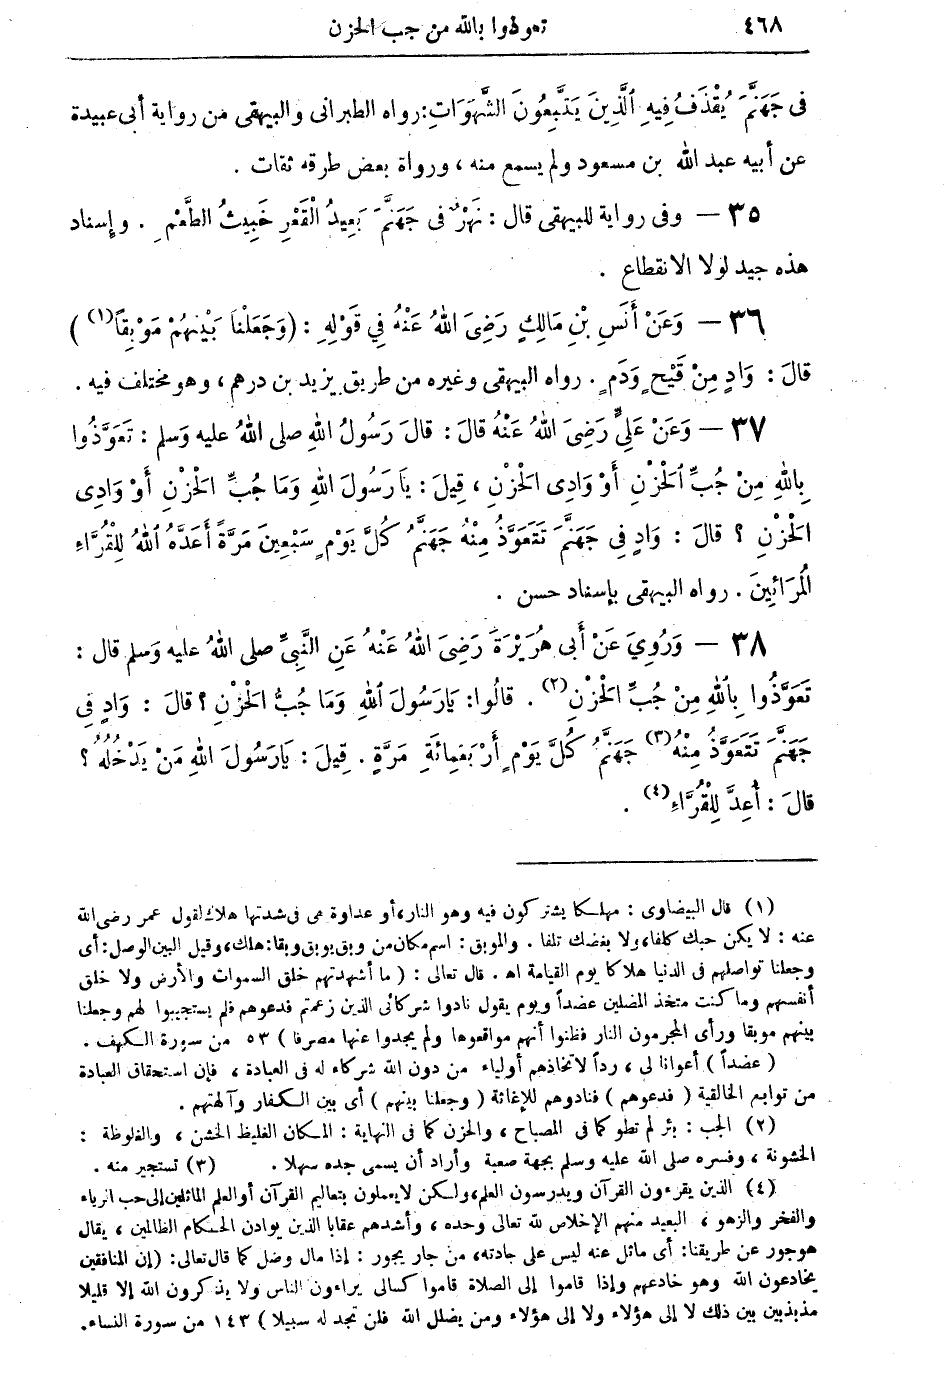 ٤٦٨ تعوذوا بالله من جب الحزن
فِى جَهَنَّمَ يُقْذَفُ فِيهِ الَّذِينَ يَتَّبِعُونَ الشَّهَوَاتِ: رواه الطبرانى والبيهقى من رواية أبى عبيدة
عن أبيه عبد الله بن مسعود ولم يسمع منه ، ورواة بعض طرقه ثقات .
٣٥ — وفى رواية للبيهقى قال : نَهْرٌ فى جَهَنَّمَ بَعِيدُ الْقَعْرِ خَبِيثُ الطَّعْمِ . وإسناد
هذه جيد لولا الانقطاع .
٣٦ — وَعَنْ أَنَسِ بْنِ مَالِكٍ رَضِىَ اللهُ عَنْهُ فِي قَوْلِهِ : (وَجَعَلْنَا بَيْنَهُمْ مَوْبِقاً(١) )
قالَ : وَادٍ مِنْ قَيْحٍ وَدَمٍ . رواه البيهقى وغيره من طريق يزيد بن درهم ، وهو مختلف فيه .
٣٧ — وَعَنْ عَلِىٍّ رَضِىَ اللهُ عَنْهُ قالَ : قالَ رَسُولُ اللهِ صلى اللهُ عليه وَسلم : تَعَوَّذُوا
بِاللهِ مِنْ جُبِّ الْحَزْنِ أَوْ وَادِى الْحَزْنِ ، قِيلَ : يَا رَسُولَ اللهِ وَمَا جُبُّ الْحَزْنِ أَوْ وَادِى
الْحَزْنِ ؟ قالَ : وَادٍ فِى جَهَنَّمَ تَتَعَوَّذُ مِنْهُ جَهَنَّمُ كُلَّ يَوْمٍ سَبْعِينَ مَرَّةً أَعَدَّهُ اللهُ لِلْقُرَّاءِ
الْمُرَائِينَ . رواه البيهقى بإسناد حسن .
٣٨ — وَرُوِيَ عَنْ أَبى هُرَيْرَةَ رَضِىَ اللهُ عَنْهُ عَنِ النَّبِىِّ صلى اللهُ عليه وَسلم قال :
تَعَوَّذُوا بِاللهِ مِنْ جُبِّ الْحَزْنِ(٢) . قَالُوا: يَارَسُولَ اللهِ وَمَا جُبُّ الْحَزْنِ ؟ قالَ : وَادٍ فِى
جَهَنَّمَ تَتَعَوَّذُ مِنْهُ(٣) جَهَنَّمُ كُلَّ يَوْمٍ أَرْبَعَمِائَةِ مَرَّةٍ . قِيلَ : يَارَسُولَ اللهِ مَنْ يَدْخُلُهُ ؟
قالَ : أُعِدَّ لِلْقُرَّاءِ(٤) .
(١) قال البيضاوى : مهلكا يشتركون فيه وهو النار، أو عداوة هى فى شدتها هلاك لقول عمر رضى الله
عنه : لا يكن حبك كلفا، ولا بغضك تلفا . والموبق : اسم مكان من وبق يوبق وبقا: هلك، وقيل البين الوصل: أى
وجعلنا تواصلهم فى الدنيا هلاكا يوم القيامة اه . قال تعالى : ( ما أشهدتهم خلق السموات والأرض ولا خلق
أنفسهم وما كنت متخذ المضلين عضداً ويوم يقول نادوا شركائى الذين زعمتم فدعوهم فلم يستجيبوا لهم وجعلنا
بينهم موبقا ورأى المجرمون النار فظنوا أنهم مواقعوها ولم يجدوا عنها مصرفا ) ٥٣ من سورة الكهف .
( عضداً ) أعوانا لى ، رداً لاتخاذهم أولياء من دون الله شركاء له فى العبادة ، فإن استحقاق العبادة
من توابع الخالقية ( فدعوهم ) فنادوهم للإغاثة ( وجعلنا بينهم ) أى بين الكفار وآلهتهم .
(٢) الجب : بئر لم تطو كما فى المصباح ، والحزن كما فى النهاية : المكان الغليظ الخشن ، والغلوظة :
الخشونة ، وفسره صلى الله عليه وسلم بجهة صعبة وأراد أن يسمى جده سهلا . (٣) تستجير منه .
(٤) الذين يقرءون القرآن ويدرسون العلم، ولكن لايعملون بتعاليم القرآن أوالعلم المائلين إلى حب الرياء
والفخر والزهو ، البعيد منهم الإخلاص لله تعالى وحده ، وأشدهم عقابا الذين يوادن الحكام الظالمين ، يقال
هوجور عن طريقنا: أى مائل عنه ليس على جادته، من جار يجور : إذا مال وضل كما قال تعالى: (إن المنافقين
يخادعون الله وهو خادعهم وإذا قاموا إلى الصلاة قاموا كسالى يراءون الناس ولا يذكرون الله إلا قليلا
مذبذبين بين ذلك لا إلى هؤلاء ولا إلى هؤلاء ومن يضلل الله فلن تجد له سبيلا ) ١٤٣ من سورة النساء.